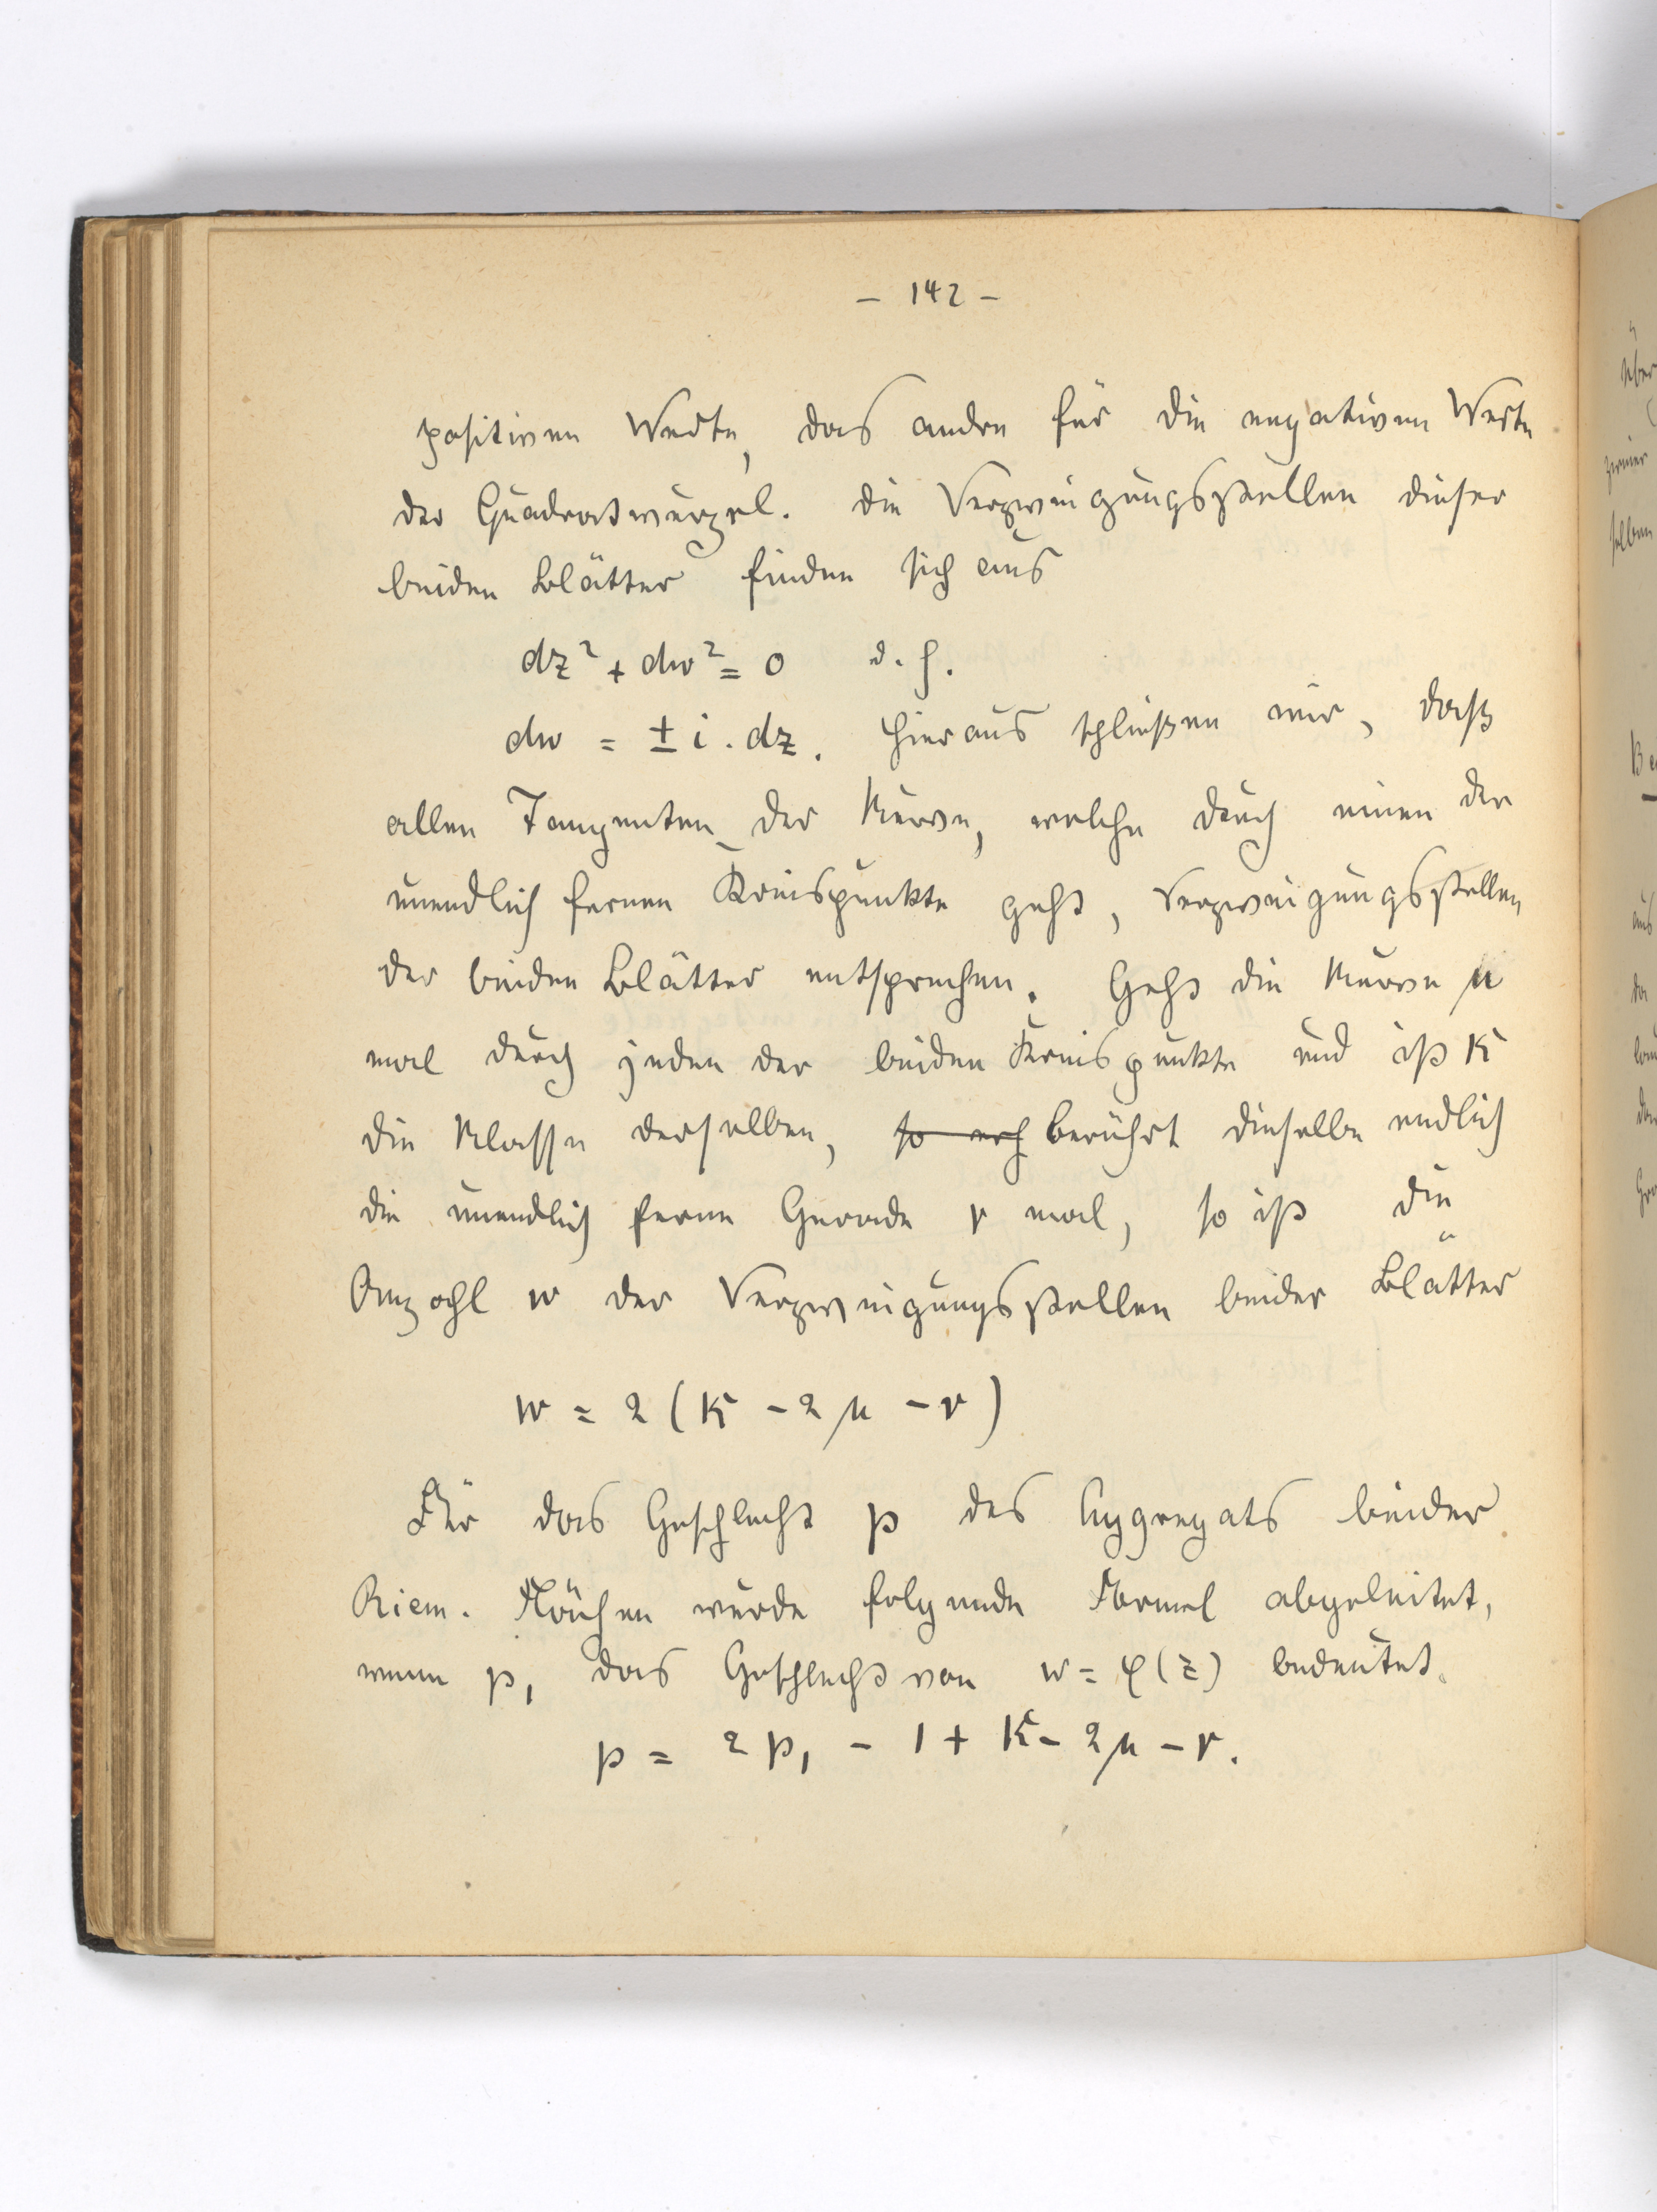 – 142 –
positiven Werte, das andre für die negativen Werte
der Quadratwurzel. Die Verzweigungsstellen dieser
beiden Blätter finden sich aus
dz² + dw² = 0 d. h.
dw = ± i . dz . Hieraus schließen wir, daß
allen Tangenten der Kurve, welche durch einen der
unendlich fernen Kreispunkte geht, Verzweigungsstellen
der beiden Blätter entsprechen. Geht die Kurve μ
mal durch jeden der beiden Kreispunkte und ist K
die Klasse derselben, berührt dieselbe endlich
die unendlich ferne Gerade r mal, so ist die
Anzahl w der Verzweigungsstellen beider Blätter
w = 2 (K – 2 μ – r)
Für das Geschlecht p des Aggregats beider
Riem. Flächen wurde folgende Formel abgeleitet,
wenn p₁ das Geschlecht von w = φ(z) bedeutet.
p = 2 p₁ – 1 + K – 2 μ – r .
über
seiner
selben
aus
da